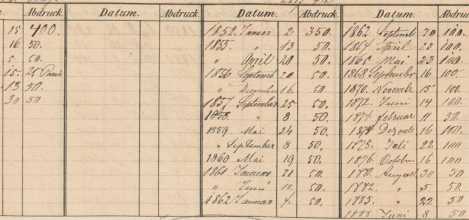 Abdruck. Datum. Abdruck Datum. Abdruck. Datum. Abdruck.
15 400. 1852. Januar 2 350. 1862 Septemb 20 100.
16 50. 1855 " 13 50. 1864 April 22 100.
5. 50. " April 20 50. 1865 Mai 23 100.
1856 Septemb 20 50. 1868 September 16 100.
13 50. " Dezember 16 50. 1870. Novemb 15 100.
30 50 1857 September 25 50. 1872. Juni 14 100.
1858. " 8 50. 1874 Februar 11 50.
1859 Mai 24 50. Dezemb 16 100.
" September 8 50. 1875. Juli 22 100.
1860 Mai 19 50. 1876. Octob 16 100.
1861 Januar 21 50. August 30 50
" Juni 50. 1882. " 5. 50.
1862 Januar 4. 50. 1883. " 22 50
Juni 8 50